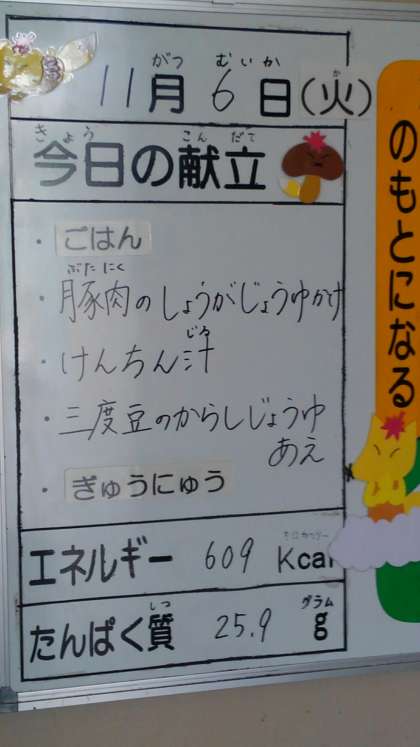 がつ むいか か
11月6日(火)
きょう こんだて
今日の献立
・ごはん
ぶたにく
・豚肉のしょうがじょうゆかけ
じる
・けんちん汁
・三度豆のからしじょうゆ
あえ
・ぎゅうにゅう
キロカロリー
エネルギー 609 Kcal
しつ グラム
たんぱく質 25.9 g
のもとになる